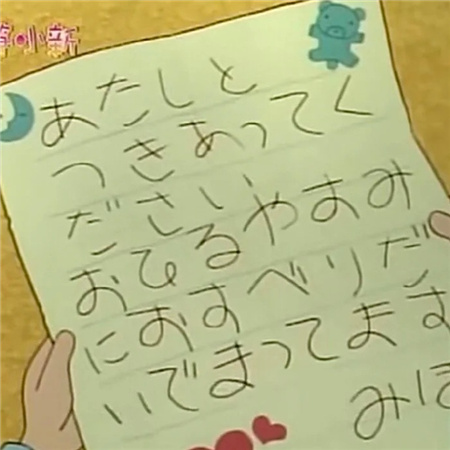 筆小新
あたしと
つきあってく
ださい
おひるやすみ
におすべりだ
いでまってます
みほ